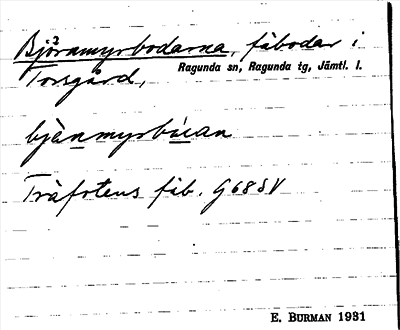 Björnmyrbodarna, fäbodar i
Torsgård, Ragunda sn, Ragunda tg, Jämtl. l.
bjènmyrbúan
Träfotens fäb. G68SV
E. BURMAN 1931